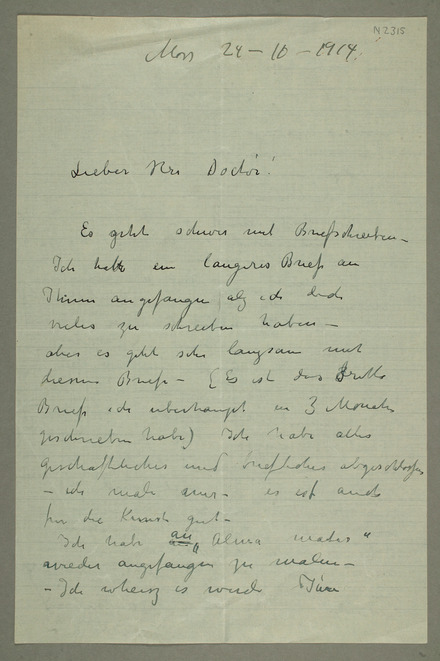 N 2315
Moss 24 – 10 – 1914.
Lieber Herr Doctor!
Es geht schwer mit Briefschreiben –
Ich hatte ein längeres Brief an
Ihnen angefangen als ich doch
vieles zu schreiben haben –
aber es geht sehr langsam mit
diesem Briefe – (Es ist das dritte
Brief ich uberhaupt in 3 Monate
geschrieben habe) Ich habe alles
geschaftliches und briefliches abgeschlossen
– ich male nur – es ist auch
fur die Kunst gut –
Ich habe an „Alma mater“
wieder angefangen zu malen –
– Ich es wurde